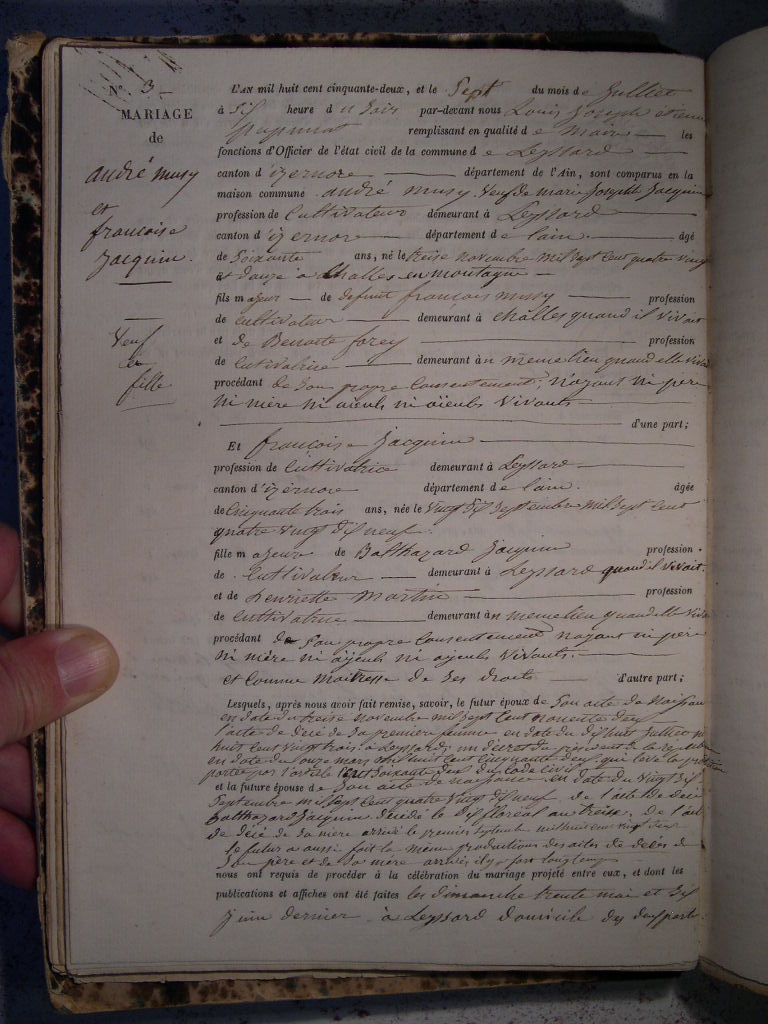 N° 3
MARIAGE
de
andré musy
et
francoise
jacquin.
Veuf
et
fille
L'AN mil huit cent cinquante-deux, et le Sept du mois de Juillet
à Six heure du Soir par-devant nous Louis Joseph étienne
remplissant en qualité de Maire les
fonctions d'Officier de l'état civil de la commune de Leyssard
canton d'izernore département de l'Ain, sont comparus en la
maison commune andré musy Veuf de marie Joseph Jacquin
profession de Cultivateur demeurant à Leyssard
canton d'izernore département de l'ain âgé
de Soixante ans, né le treise novembre mil Sept Cent quatre vingt
et douze à Challes en montagne
fils majeur de defunt francois musy profession
de Cultivateur demeurant à Châlles quand il vivait
et de Benoite forey profession
de Cultivatrice demeurant au meme lieu quand elle vivait
procédant de Son propre Consentement, n'ayant ni père
ni mère ni aïeuls ni aïeules Vivants
d'une part;
Et francoise Jacquin
profession de Cultivatrice demeurant à Leyssard
canton d'izernore département de l'ain. âgée
de Cinquante trois ans, née le Vingt Six Septembre mil Sept Cent
quatre Vingt Dix neuf.
fille majeure de Balthazard Jacquin profession
de Cultivateur demeurant à Leyssard quand il vivait.
et de henriette Martin profession
de Cultivatrice demeurant au meme lieu quand elle vivait
procédant de Son propre Consentement n'ayant ni père
ni mère ni aïeuls ni aïeules Vivants.
et Comme Maitresse de Ses droits d'autre part;
Lesquels, après nous avoir fait remise, savoir, le futur époux de Son acte de Naissance
en date du treise novembre mil Sept Cent nonente deux
l'acte de décé de Sa première femme en date du dix huit Juillet mil
huit Cent Vingt trois à Leyssard, un décret du président de la république
en date du douze mars mil huit Cent Cinquante deux qui leve la prohibition
portée par l'article Cent Soixante deux du Code Civil
et la future épouse de Son acte de naissance en date du Vingt Six
Septembre mil Sept Cent quatre Vingt Dix neuf, de l'acte de décé
Balthazard Jacquin décédé le Six floreal an treise, de l'acte
de décé de Sa mère arrivé le premier Septembre mil huit Cent Vingt
le futur a aussi fait la même productions des actes de décès de
Son père et de Sa mère arrivés il y a fort longtemps
nous ont requis de procéder à la célébration du mariage projeté entre eux, et dont les
publications et affiches ont été faites les dimanche trente mai et Six
Juin dernier à Leyssard domicile des deux parts.